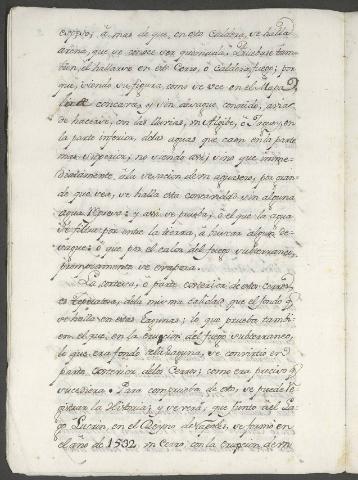 cuppo; á mas de que, en esta Caldera, se halla
arena, que se conoce ser quemada. Pruebase tam-
bien, el hallarse en este Cerro, ó Caldera, fuego; por
que, siendo su figura, como se vee en el Mapa
concava, y sin desague, conocido, avia
de hacerse, con las lluvias, un Estanque, ó Lago, en
la parte inferior, delas aguas que caen en la parte
mas superior; no siendo assi, sino que inme-
diatamente, á la de un aguacero, por gran-
de que sea, se halla esta concavidad sin alguna
agua llovediza; y assi se prueba; ó el que la agua
se filtra por entre la tierra, á buscar algun de-
sague; ó que por el calor del fuego subterraneo,
promptamente se evapora.
La corteza, ó parte exterior de estos Cerros,
es dela misma calidad que el fondo q.
se halla en estas Lagunas; lo que prueba tambi-
en el que, en la erupcion del fuego subterraneo,
lo que era fondo dela laguna, se convirtió en
parte exterior delos Cerros; como era preciso
sucediera. Para comprueba de esto, se puede re-
gistrar la Historia; y se verá, que junto del La-
go Lucrin, en el Reyno de Napoles, se formó en
el año de 1532, un Cerro, con la erupcion de un